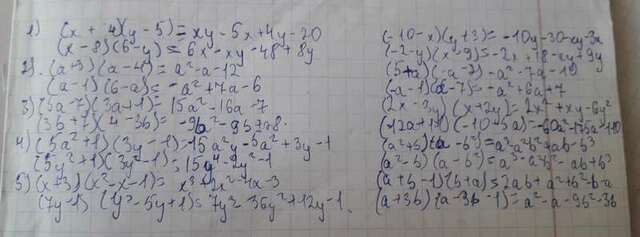 1) (x + 4)(y - 5) = xy - 5x + 4y - 20
(x - 8)(6 - y) = 6x - xy - 48 + 8y
2) (a+3)(a-4) = a² - a - 12
(a-1)(6-a) = -a² + 7a - 6
3) (5a-7)(3a+1) = 15a² - 16a - 7
(3b+7)(4-3b) = -9b² - 9b + 28
4) (5a²+1)(3y-1) = 15a²y - 5a² + 3y - 1
(5y²+1)(3y²-1) = 15y⁴ - 2y² - 1
5) (x+3)(x²-x-1) = x³ + 2x² - 4x - 3
(7y-1)(y²-5y+1) = 7y³ - 36y² + 12y - 1
(-10-x)(y+3) = -10y - 30 - xy - 3x
(-2-y)(x-9) = -2x + 18 - xy + 9y
(5+a)(-a-2) = -a² - 7a - 10
(-a-1)(a-7) = -a² + 6a + 7
(2x-3y)(x+2y) = 2x² + xy - 6y²
(a²-b)(a-b²) = a³ - a²b² - ab + b³
(a+b-1)(b+a) = 2ab + a² + b² - b - a
(a+3b)(a-3b-1) = a² - a - 9b² - 3b